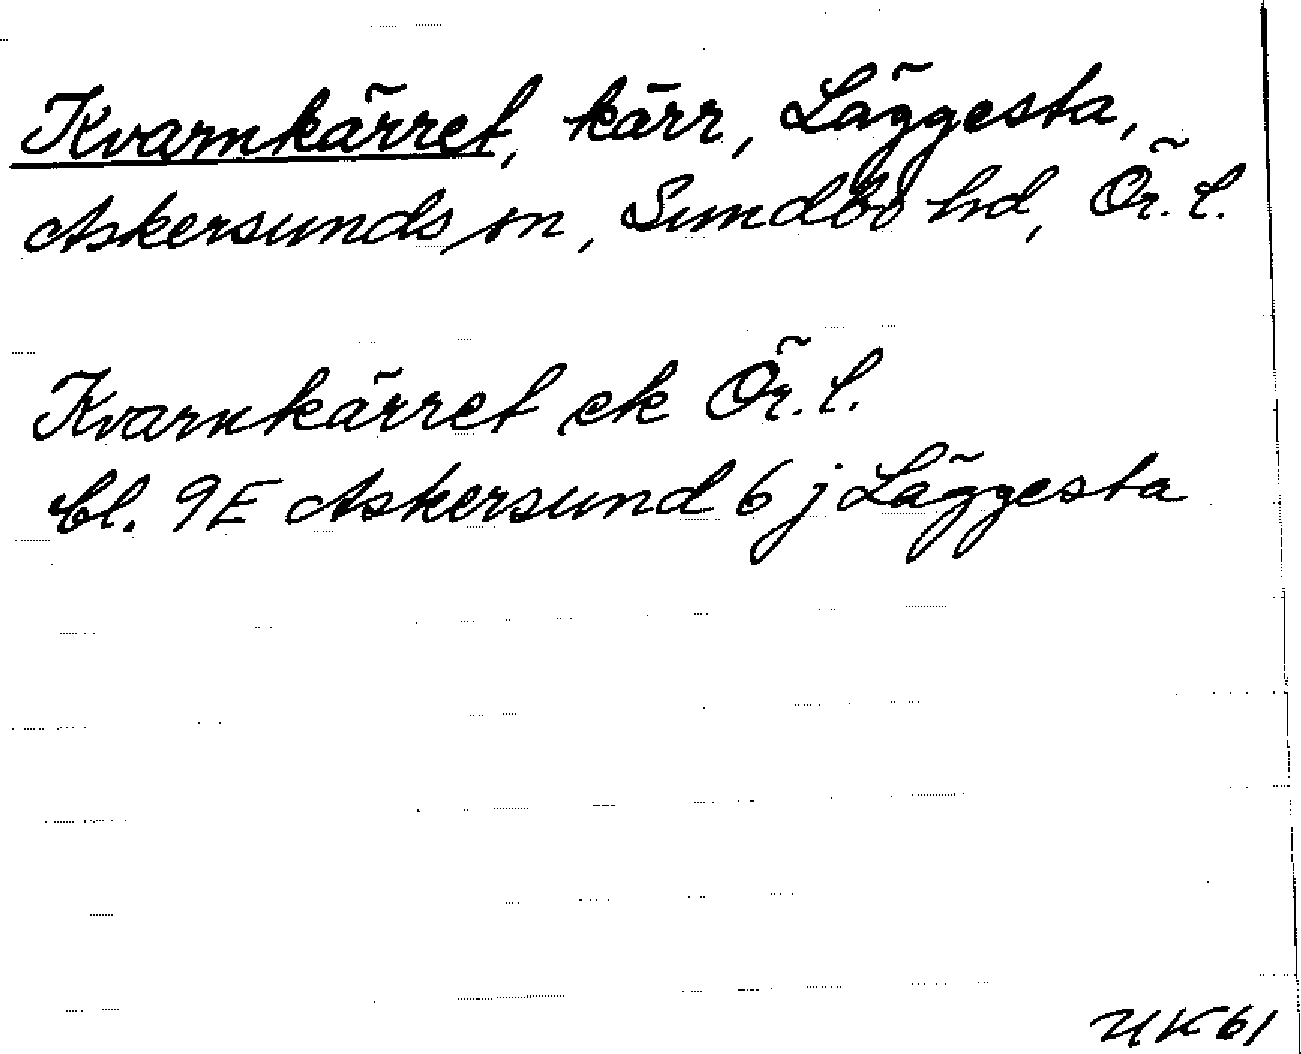 Kvarnkärret, kärr, Läggesta,
Askersunds sn, Sundbo hd, Ör. l.
Kvarnkärret ek Ör. l.
bl. 9E Askersund 6 j Läggesta
UK 61